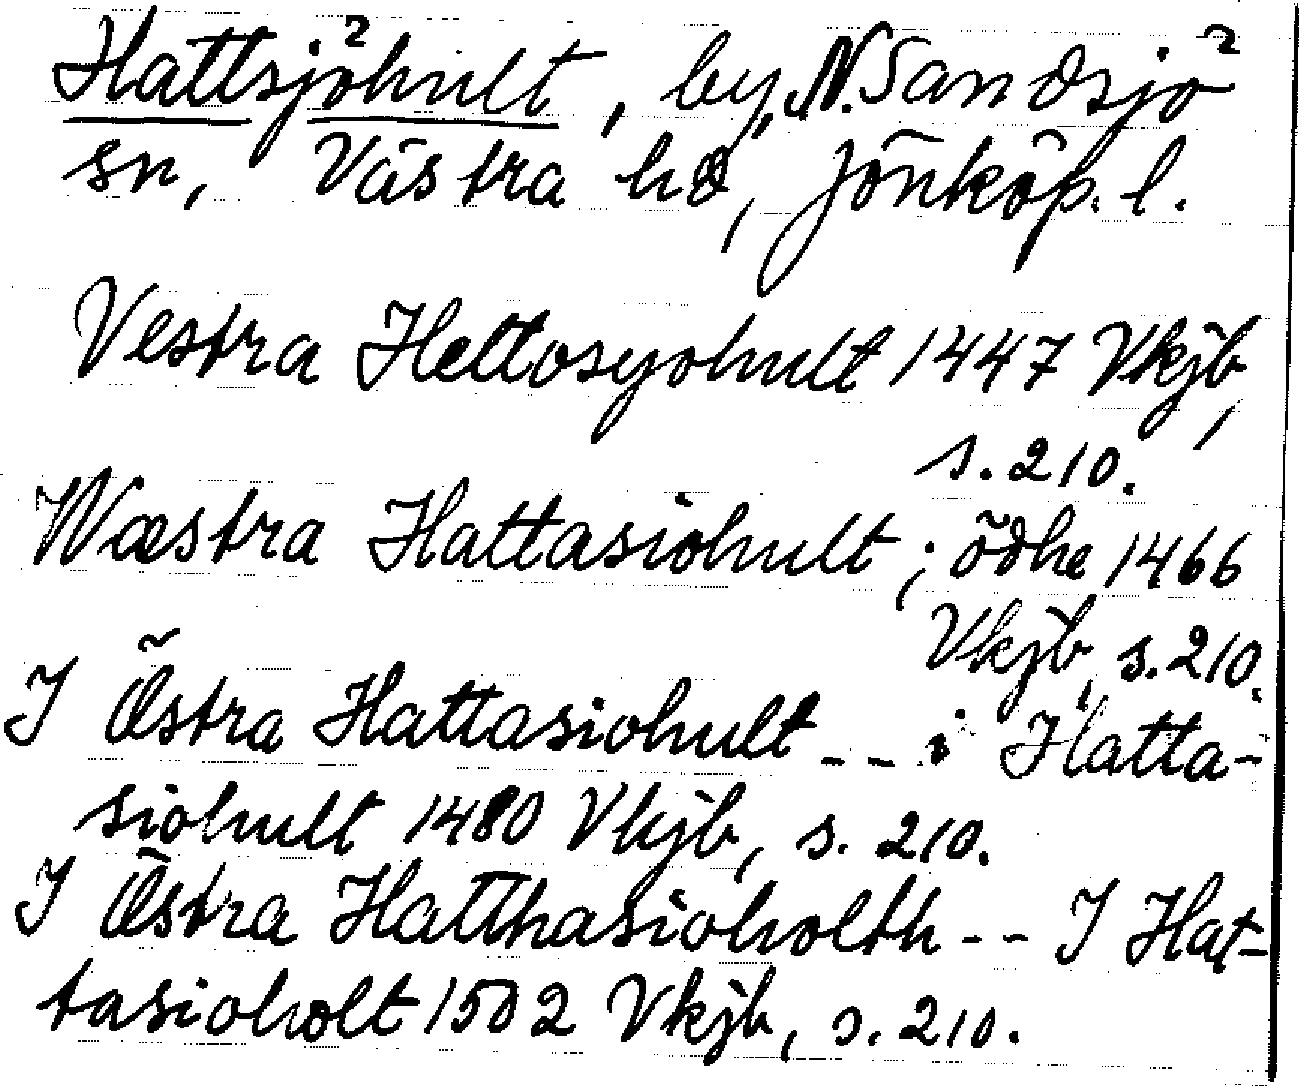 Hattsjöhult, by, N. Sandsjö
sn, Västra hd, Jönköp. l.
Vestra Hettosyohult 1447 Vkjb,
s. 210.
Wæstra Hattasiohult; ödhe 1466
Vkjb, s. 210.
I Östra Hattasiohult - - . i Hatta-
siohult 1480 Vkjb, s. 210.
I Östra Hatthasioholth - - I Hat-
tasioholt 1502 Vkjb, s. 210.